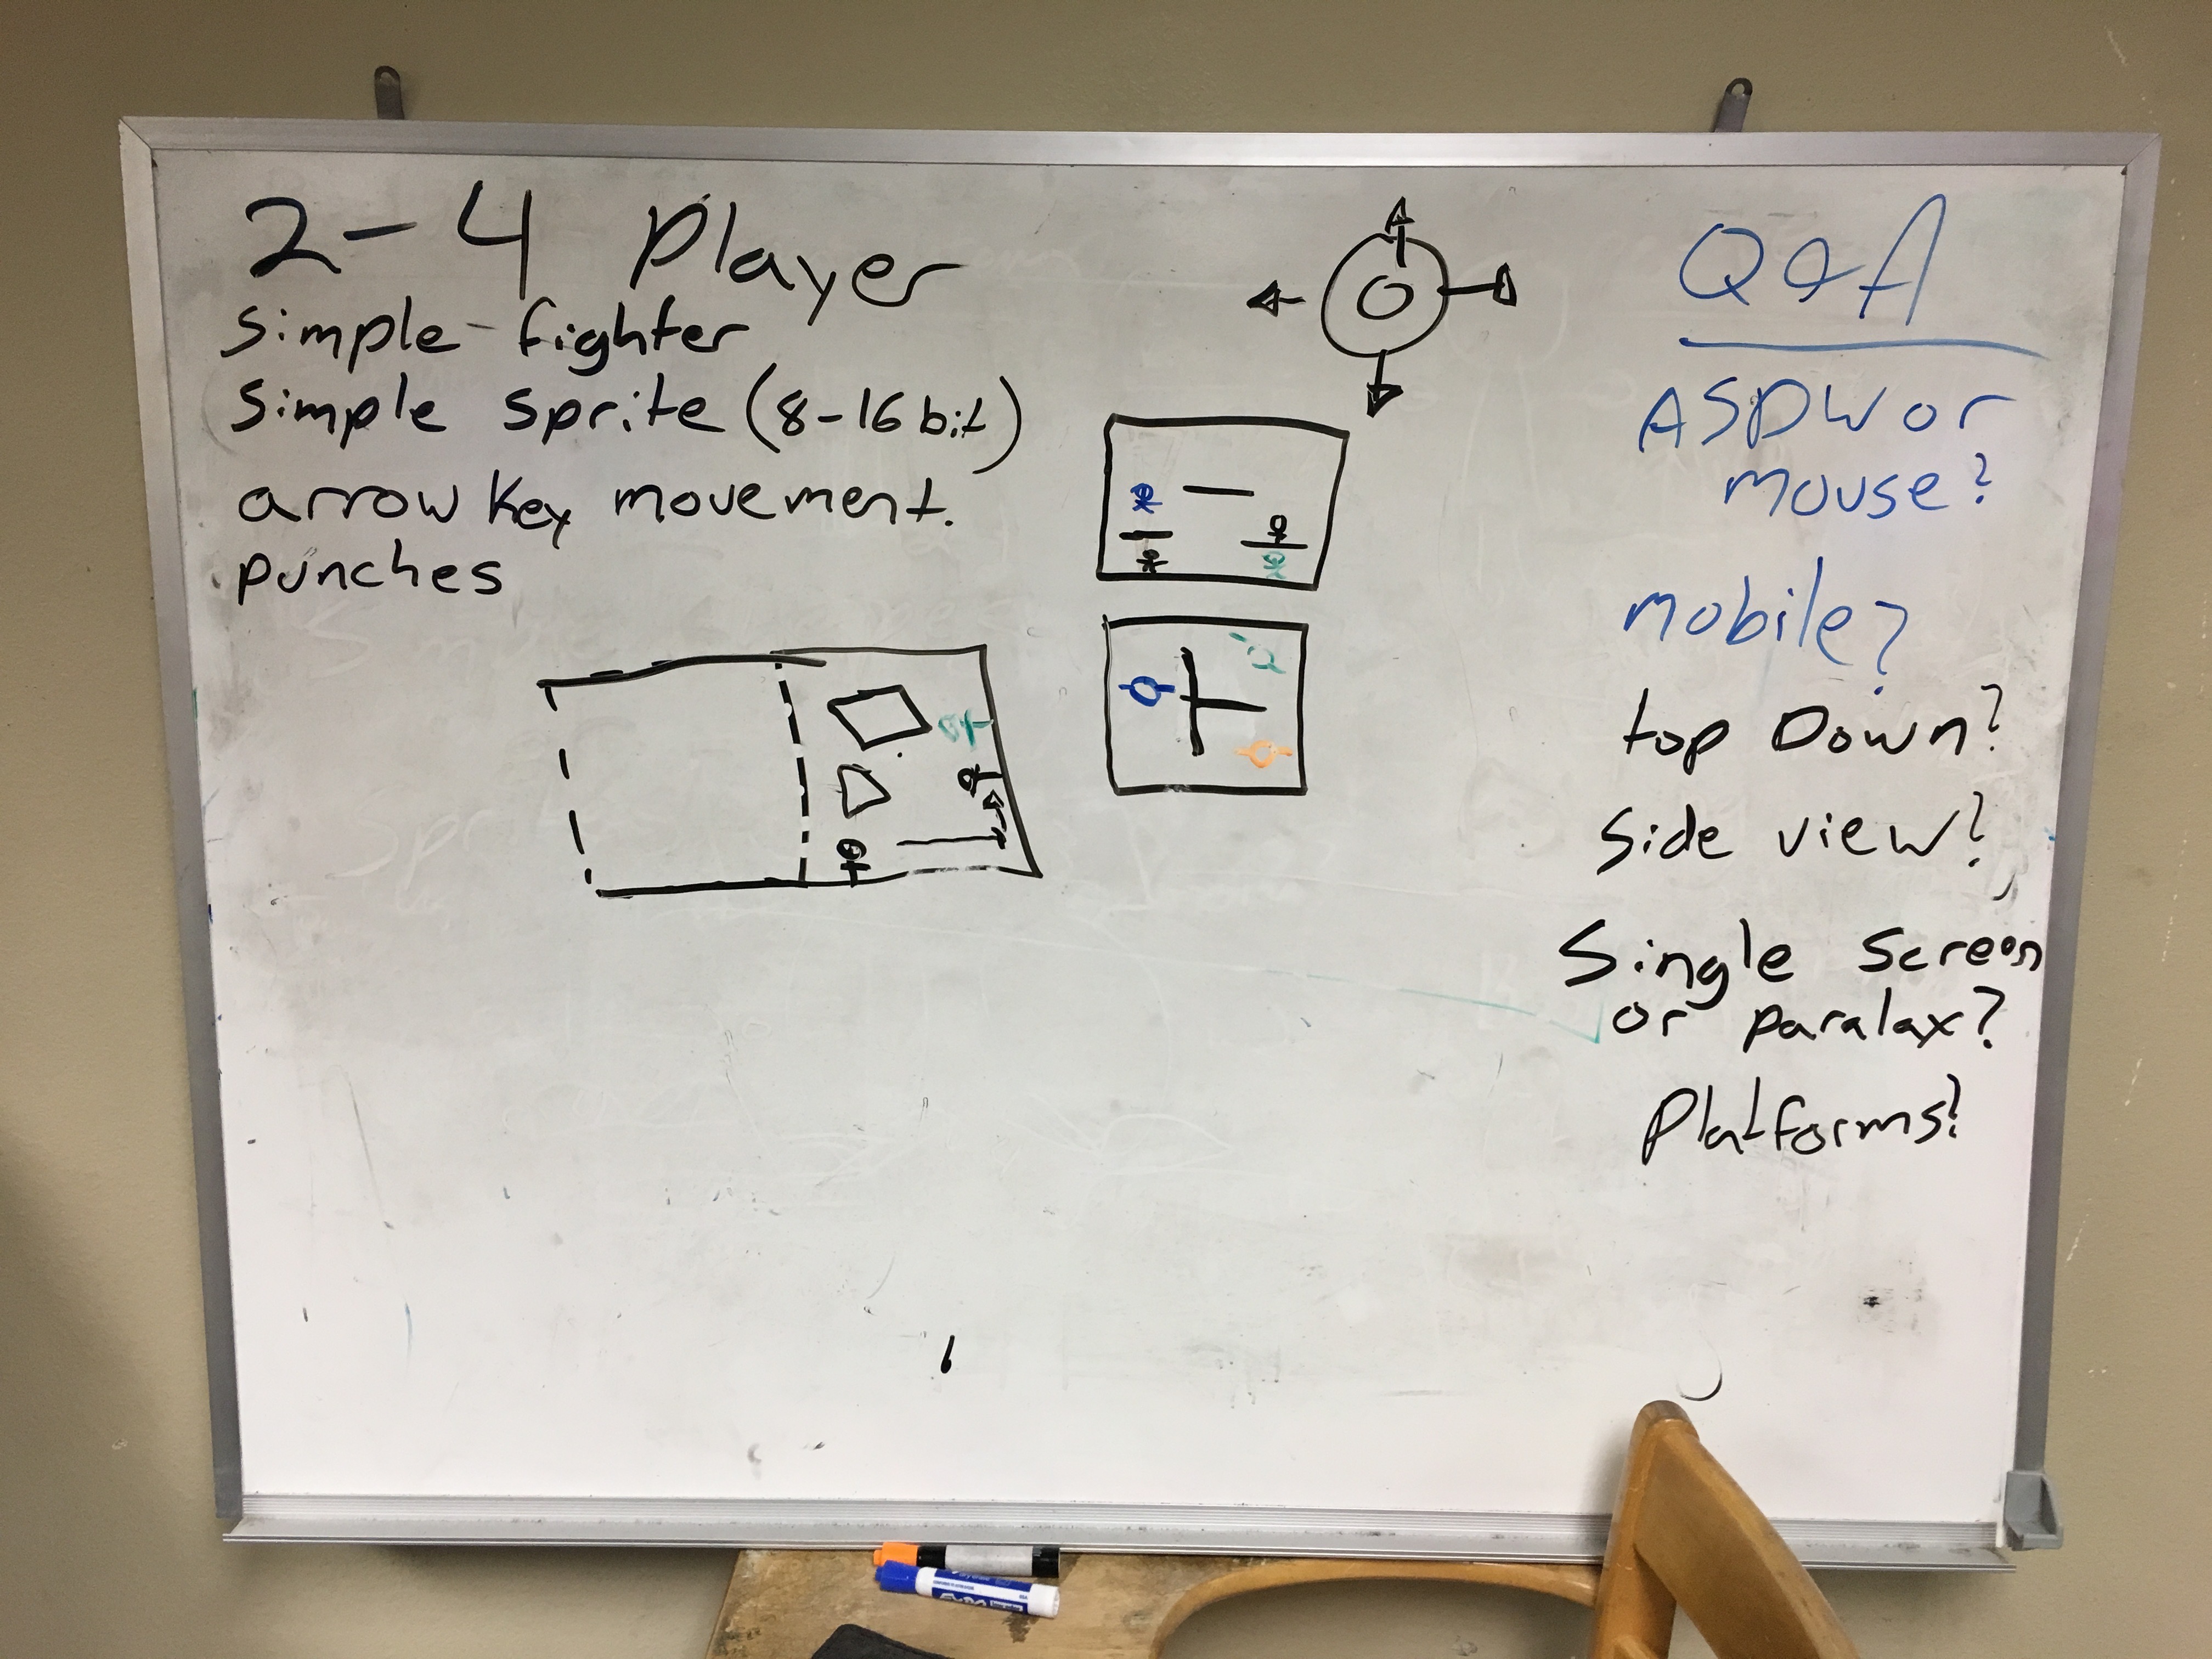 2-4 Player
Simple fighter
Simple sprite (8-16 bit)
arrow key movement.
punches
Q&A
ASDW or
mouse?
mobile?
top Down?
Side view?
Single Screen
or paralax?
Platforms?